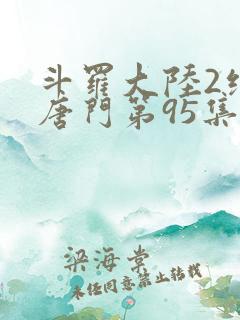 斗羅大陸2絕
唐門第95集
梁海棠
未經同意禁止轉載